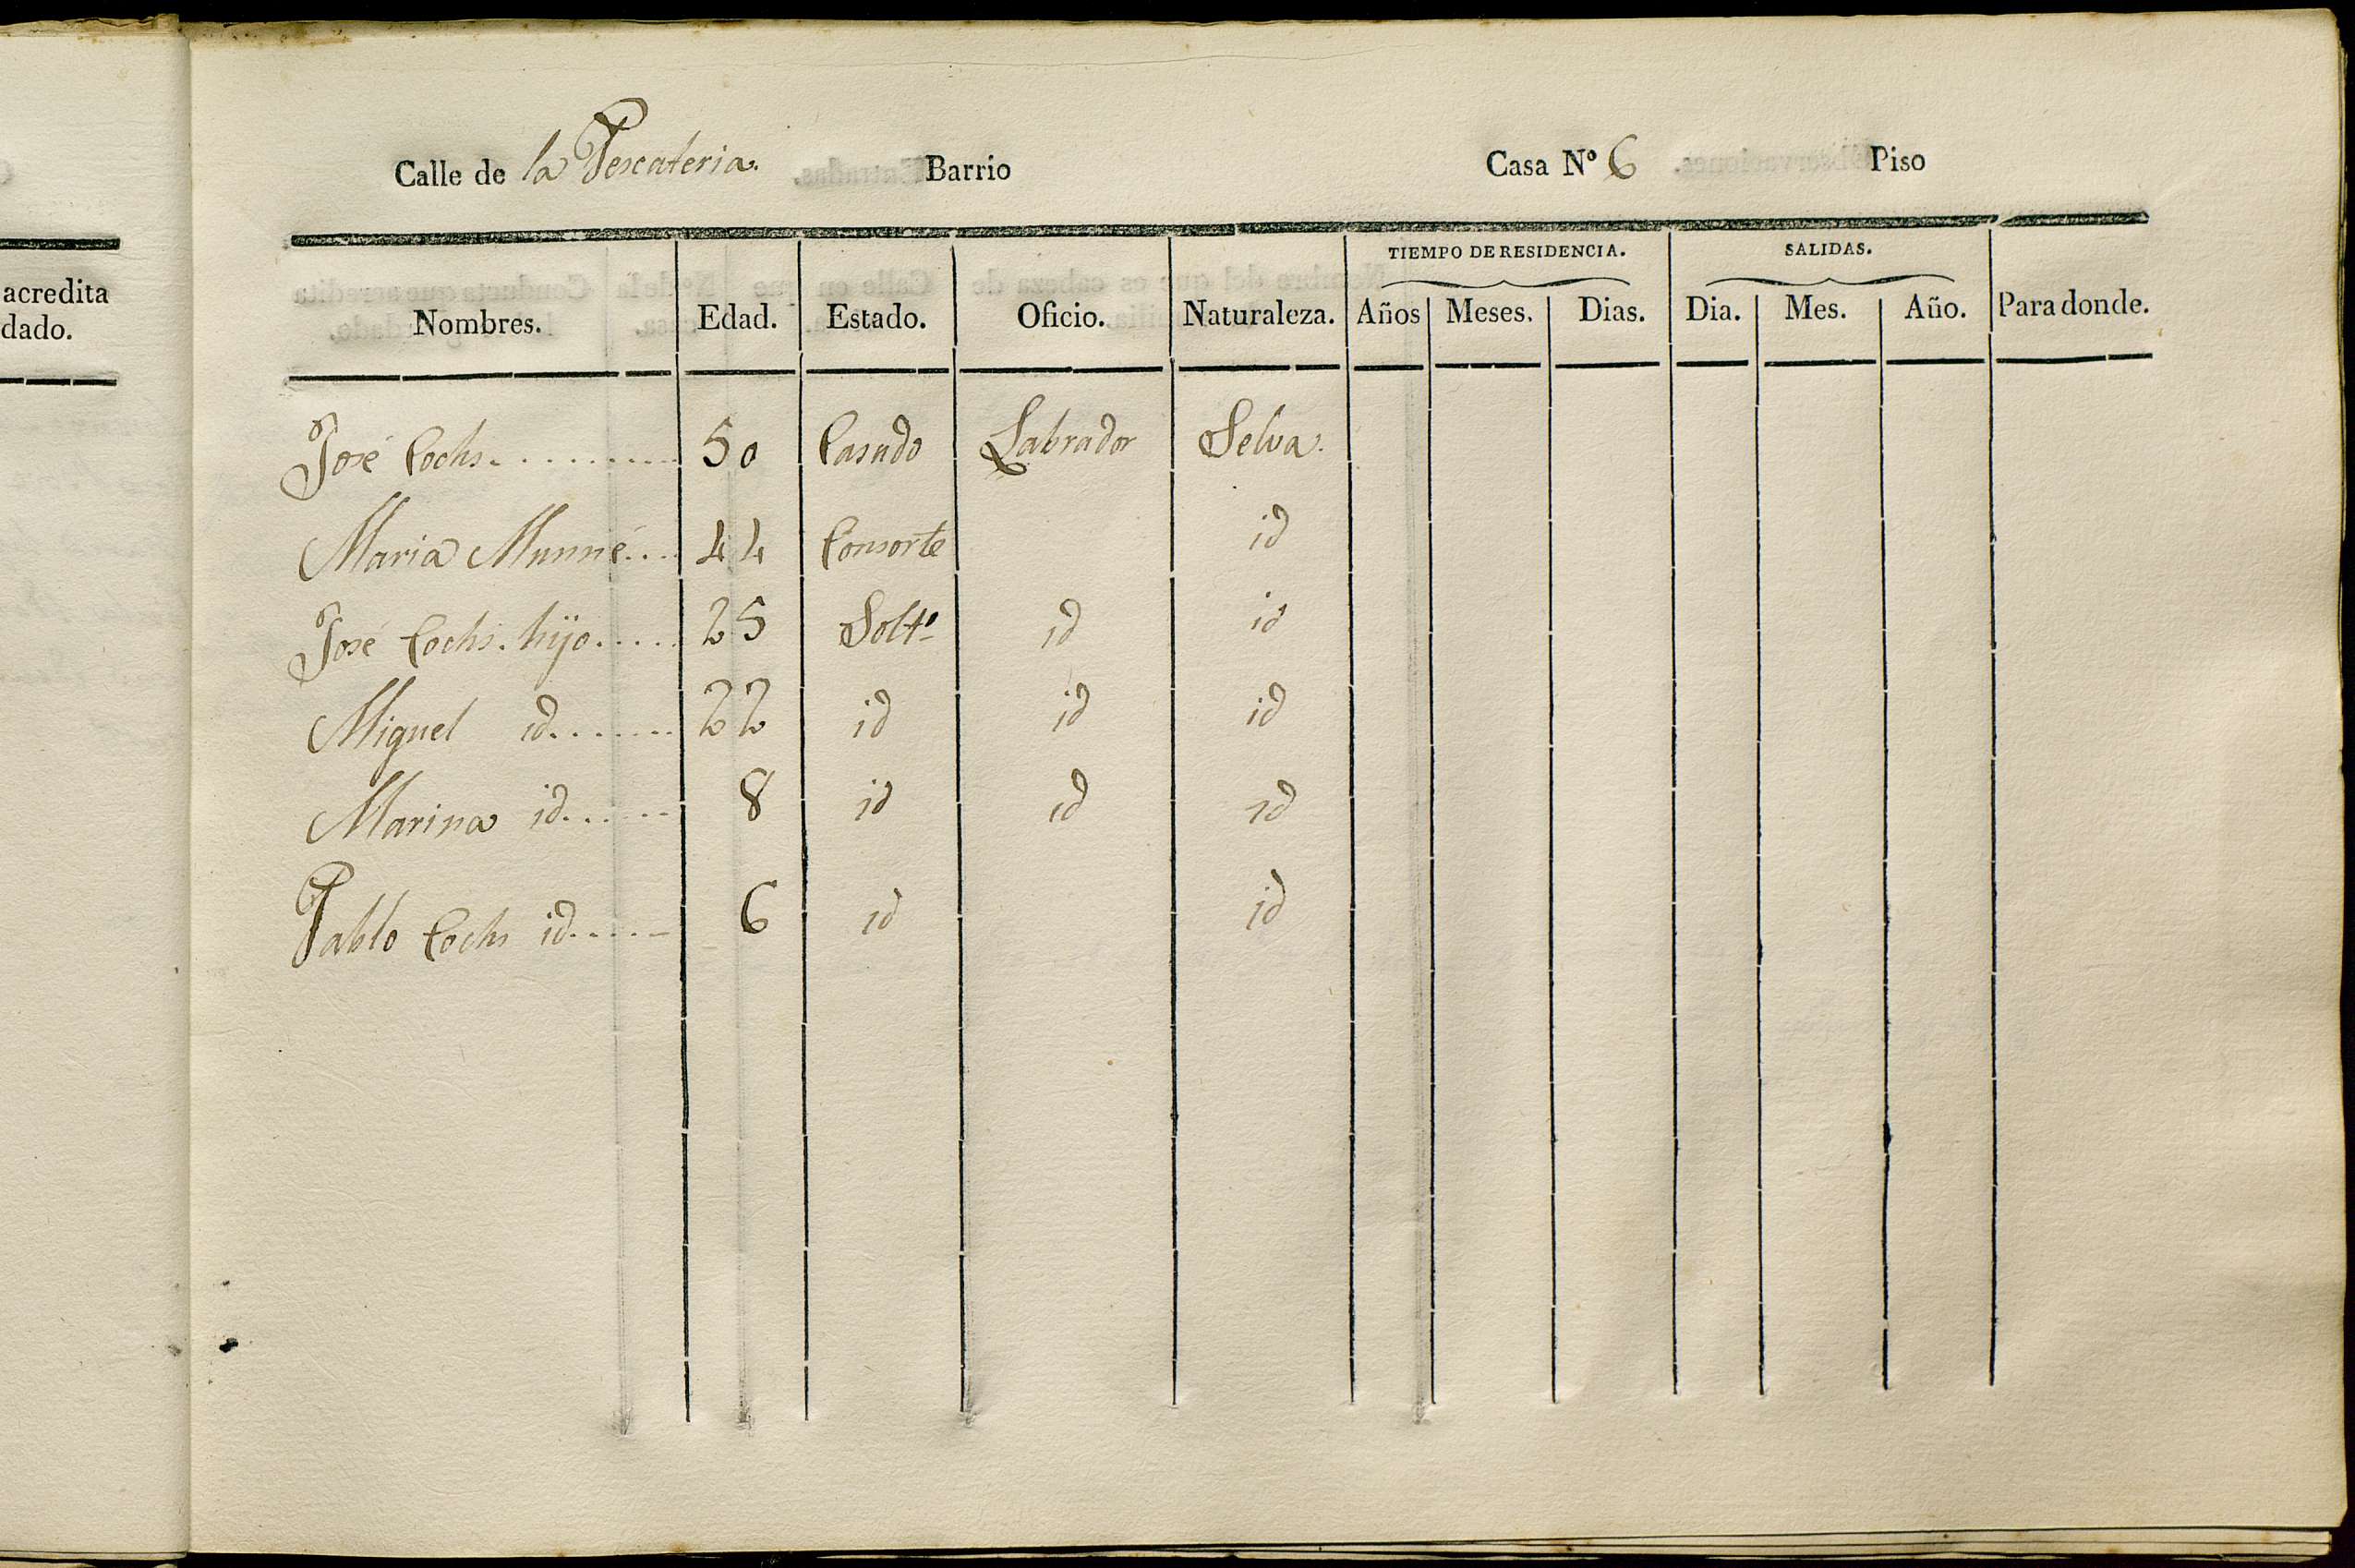 acredita
dado.
Calle de la Pescateria. Barrio Casa Nº 6 Piso
TIEMPO DE RESIDENCIA. SALIDAS.
Nombres. Edad. Estado. Oficio. Naturaleza. Años Meses. Dias. Dia. Mes. Año. Para donde.
José Cochs 50 Casado Labrador Selva.
Maria Munné 44 Consorte id
José Cochs. hijo 25 Solt.º id id
Miguel id 22 id id id
Marina id 8 id id id
Pablo Cochs id 6 id id